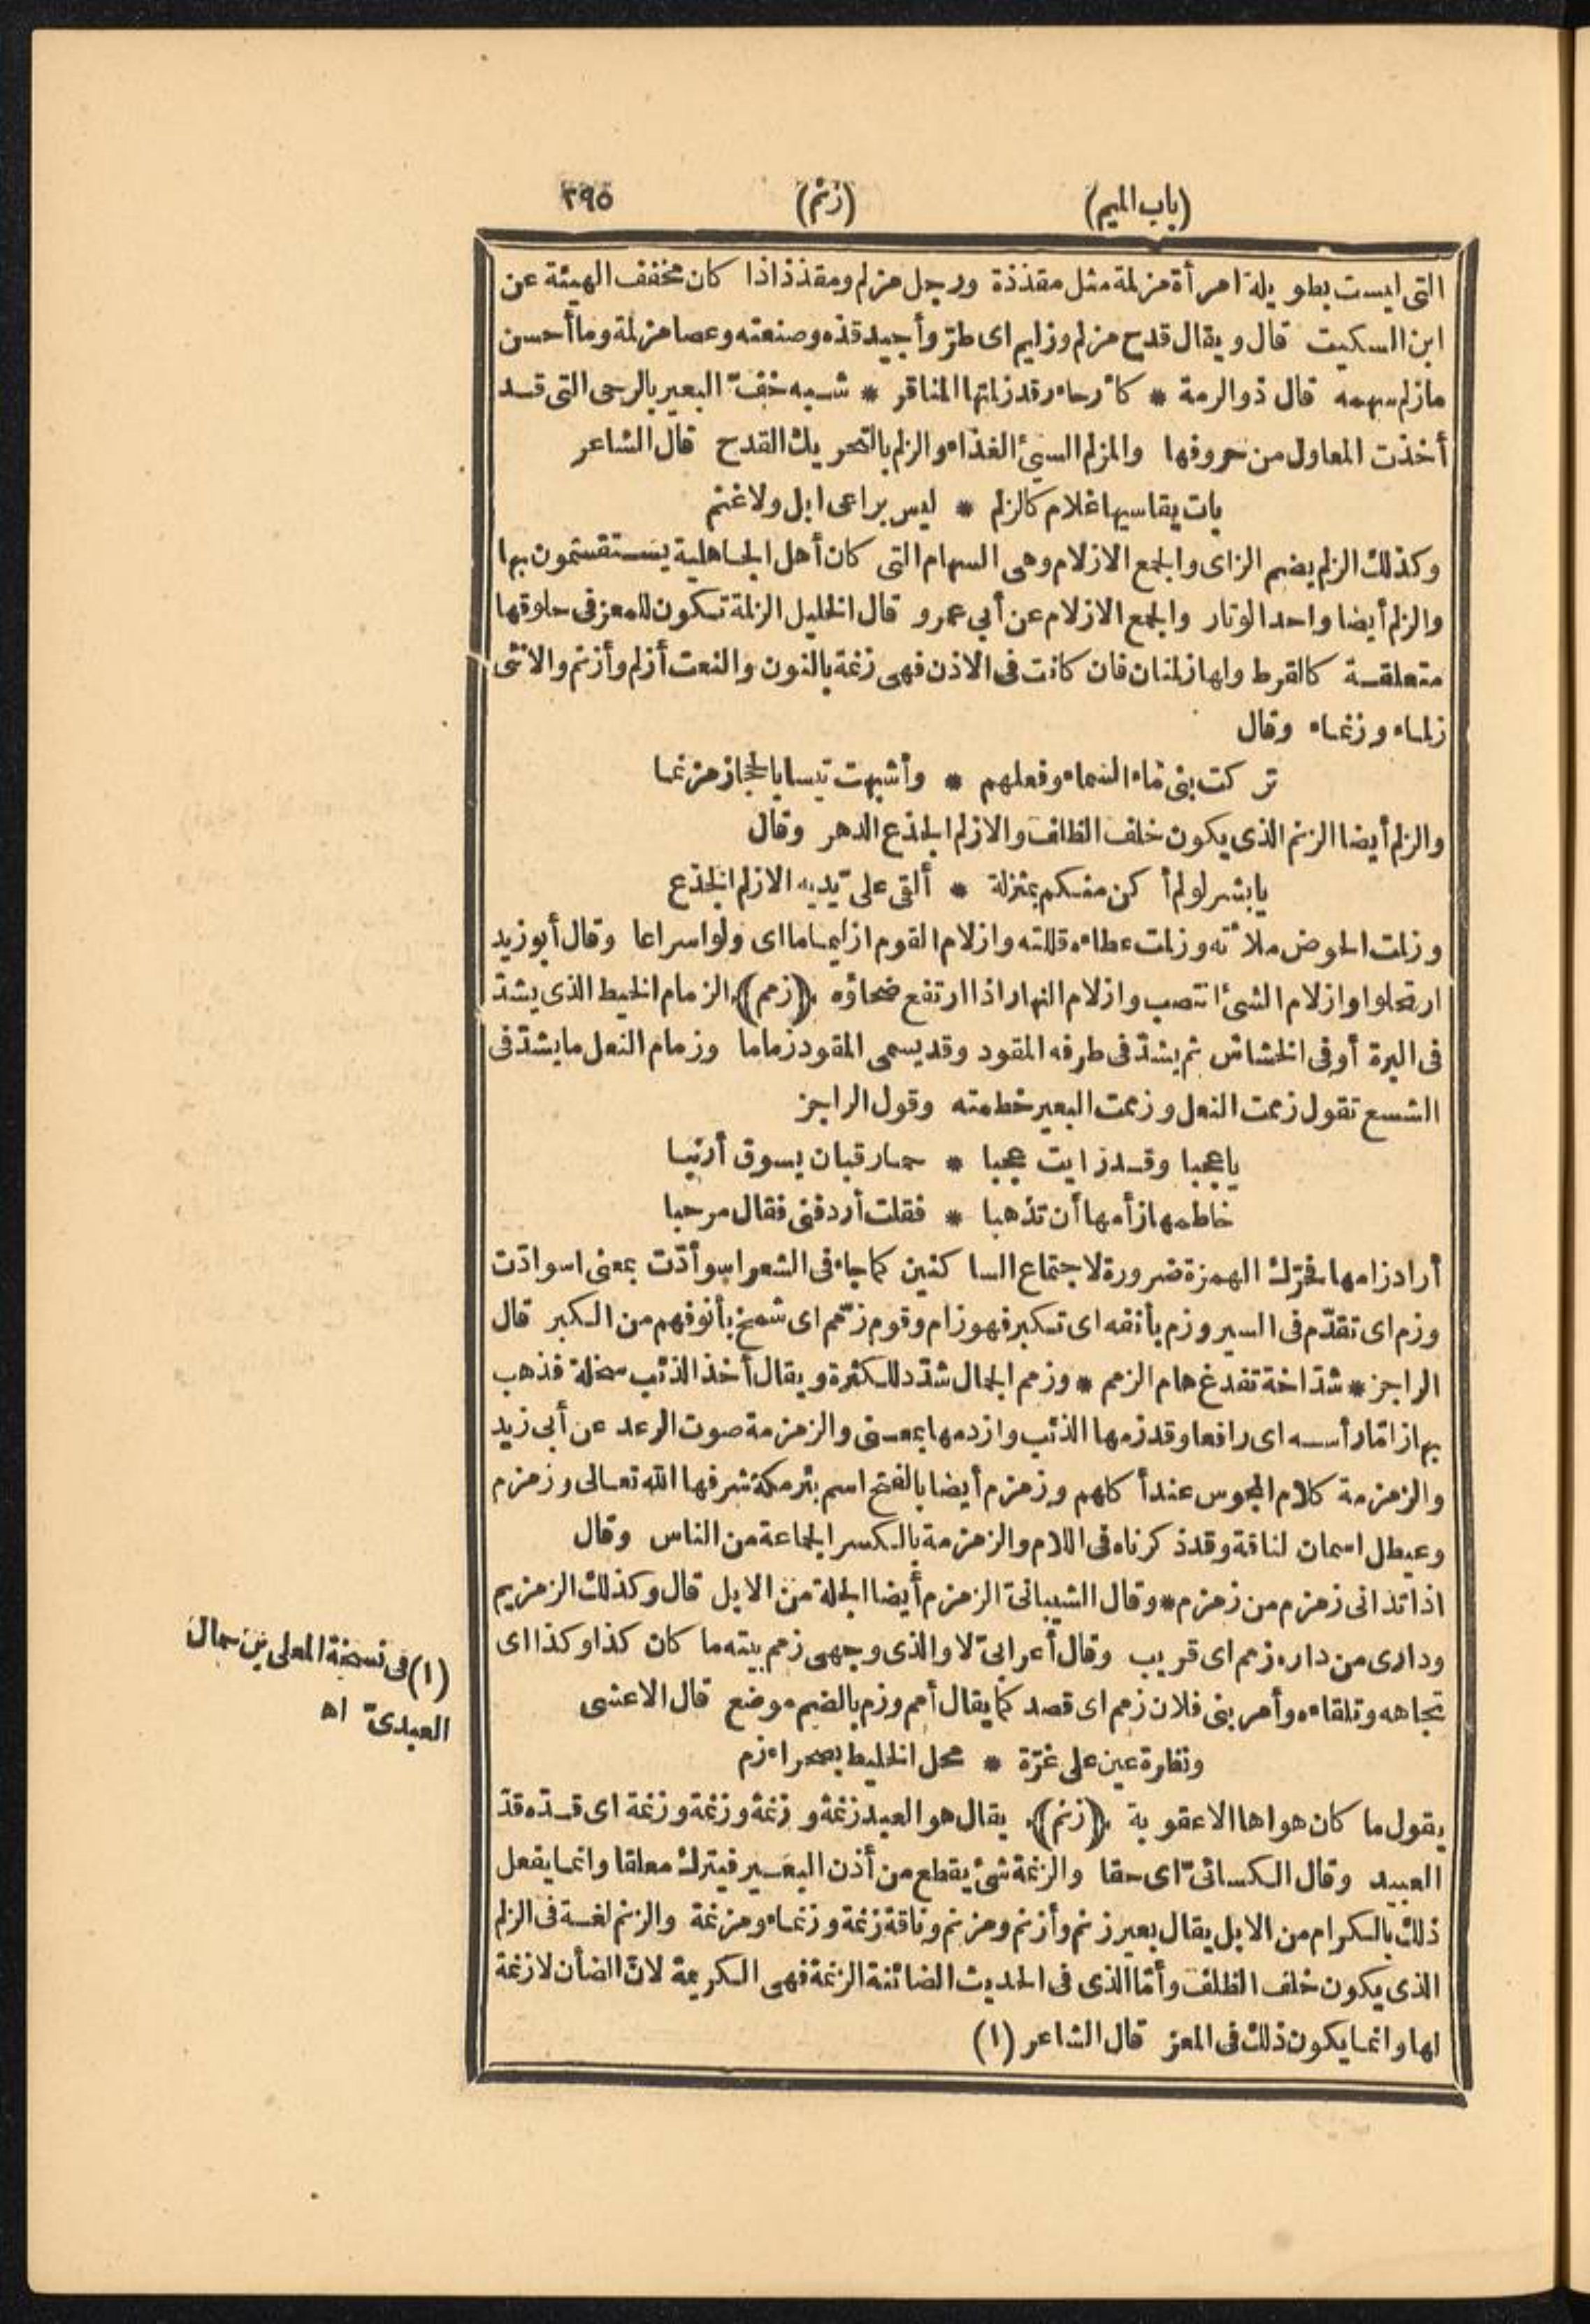 (باب الميم) (زنم) ٢٩٥
التى ليست بطويلة امرأة مزلمة مثل مقذذة ورجل مزلم ومقذذ اذا كان مخفف الهيئة عن
ابن السكيت قال ويقال قدح مزلم وزليم اى طرّ وأجيد قذه وصنعته وعصا مزلمة وما أحسن
مازلم سهمه قال ذو الرمة * كأرحاء رقد زلمتها المناقر * شبه خفّ البعير بالرحى التى قد
أخذت المعاول من حروفها والمزلم السيئ الغذاء والزلم بالتحريك القدح قال الشاعر
بات يقاسيها غلام كالزلم * ليس براعى ابل ولا غنم
وكذلك الزلم بضم الزاى والجمع الازلام وهى السهام التى كان أهل الجاهلية يستقسمون بها
والزلم أيضا واحد الوبار والجمع الازلام عن أبي عمرو قال الخليل الزلمة تكون للمعز فى حلوقها
متعلقة كالقرط ولها زلمتان فان كانت فى الاذن فهى زنمة بالنون والنعت أزلم وأزنم والانثى
زلماء وزنماء وقال
تركت بنى ماء السماء وفعلهم * وأشبهت تيسا بالحجاز مزنما
والزلم أيضا الزنم الذى يكون خلف الظلف والازلم الجذع الدهر وقال
يا بشر لو لم أكن منكم بمنزلة * ألقى على يديه الازلم الجذع
وزلمت الحوض ملأته وزلمت عطاءه قللته وازلام القوم ازليماما اى ولوا سراعا وقال أبو زيد
ارتحلوا وازلام الشئ انتصب وازلام النهار اذا ارتفع ضحاؤه (زمم) الزمام الخيط الذى يشدّ
فى البرة أو فى الخشاش ثم يشدّ فى طرفه المقود وقد يسمى المقود زماما وزمام النعل ما يشدّ فى
الشسع تقول زممت النعل وزممت البعير خطمته وقول الراجز
يا عجبا وقد رأيت عجبا * حمار قبان يسوق أرنبا
خاطمها زأمها أن تذهبا * فقلت أردفنى فقال مرحبا
أراد زامها فحرّك الهمزة ضرورة لاجتماع الساكنين كما جاء فى الشعر اسوأدّت بمعنى اسوادّت
وزم اى تقدّم فى السير وزم بأنفه اى تكبر فهو زام وقوم زمّم اى شمخ بأنوفهم من الكبر قال
الراجز * شدّاخة تفدغ هام الزمم * وزمم الجمال شدّد للكثرة ويقال أخذ الذئب سخلة فذهب
بها زامّا رأسه اى رافعا وقد زمها الذئب وازدمها بمعنى والزمزمة صوت الرعد عن أبى زيد
والزمزمة كلام المجوس عند أكلهم وزمزم أيضا بالفتح اسم بئر مكة شرفها الله تعالى وزمزم
وعيطل اسمان لناقة وقد ذكرناه فى اللام والزمزمة بالكسر الجماعة من الناس وقال
اذا تدانى زمزم من زمزم * وقال الشيبانىّ الزمزم أيضا الجلة من الابل قال وكذلك الزمزيم
ودارى من داره زمم اى قريب وقال أعرابىّ لا والذى وجهى زمم بيته ما كان كذا وكذا اى
تجاهه وتلقاءه وأمر بنى فلان زمم اى قصد كما يقال أمم وزم بالضم موضع قال الاعشى
ونظرة عين على غرّة * محل الخليط بصحراء زم
يقول ما كان هواها الا عقوبة (زنم) يقال هو العبد زنمة وزنمة وزنمة وزنمة اى قدّه قدّ
العبيد وقال الكسائىّ اى حقا والزنمة شئ يقطع من أذن البعير فيترك معلقا وانما يفعل
ذلك بالكرام من الابل يقال بعير زنم وأزنم ومزنم وناقة زنمة وزنماء ومزنمة والزنم لغة فى الزلم
الذى يكون خلف الظلف وأمّا الذى فى الحديث الضائنة الزنمة فهى الكريمة لانّ الضأن لا زنمة
لها وانما يكون ذلك فى المعز قال الشاعر (١)
(١) فى نسخة المعلى بن جمال
العبدىّ اه